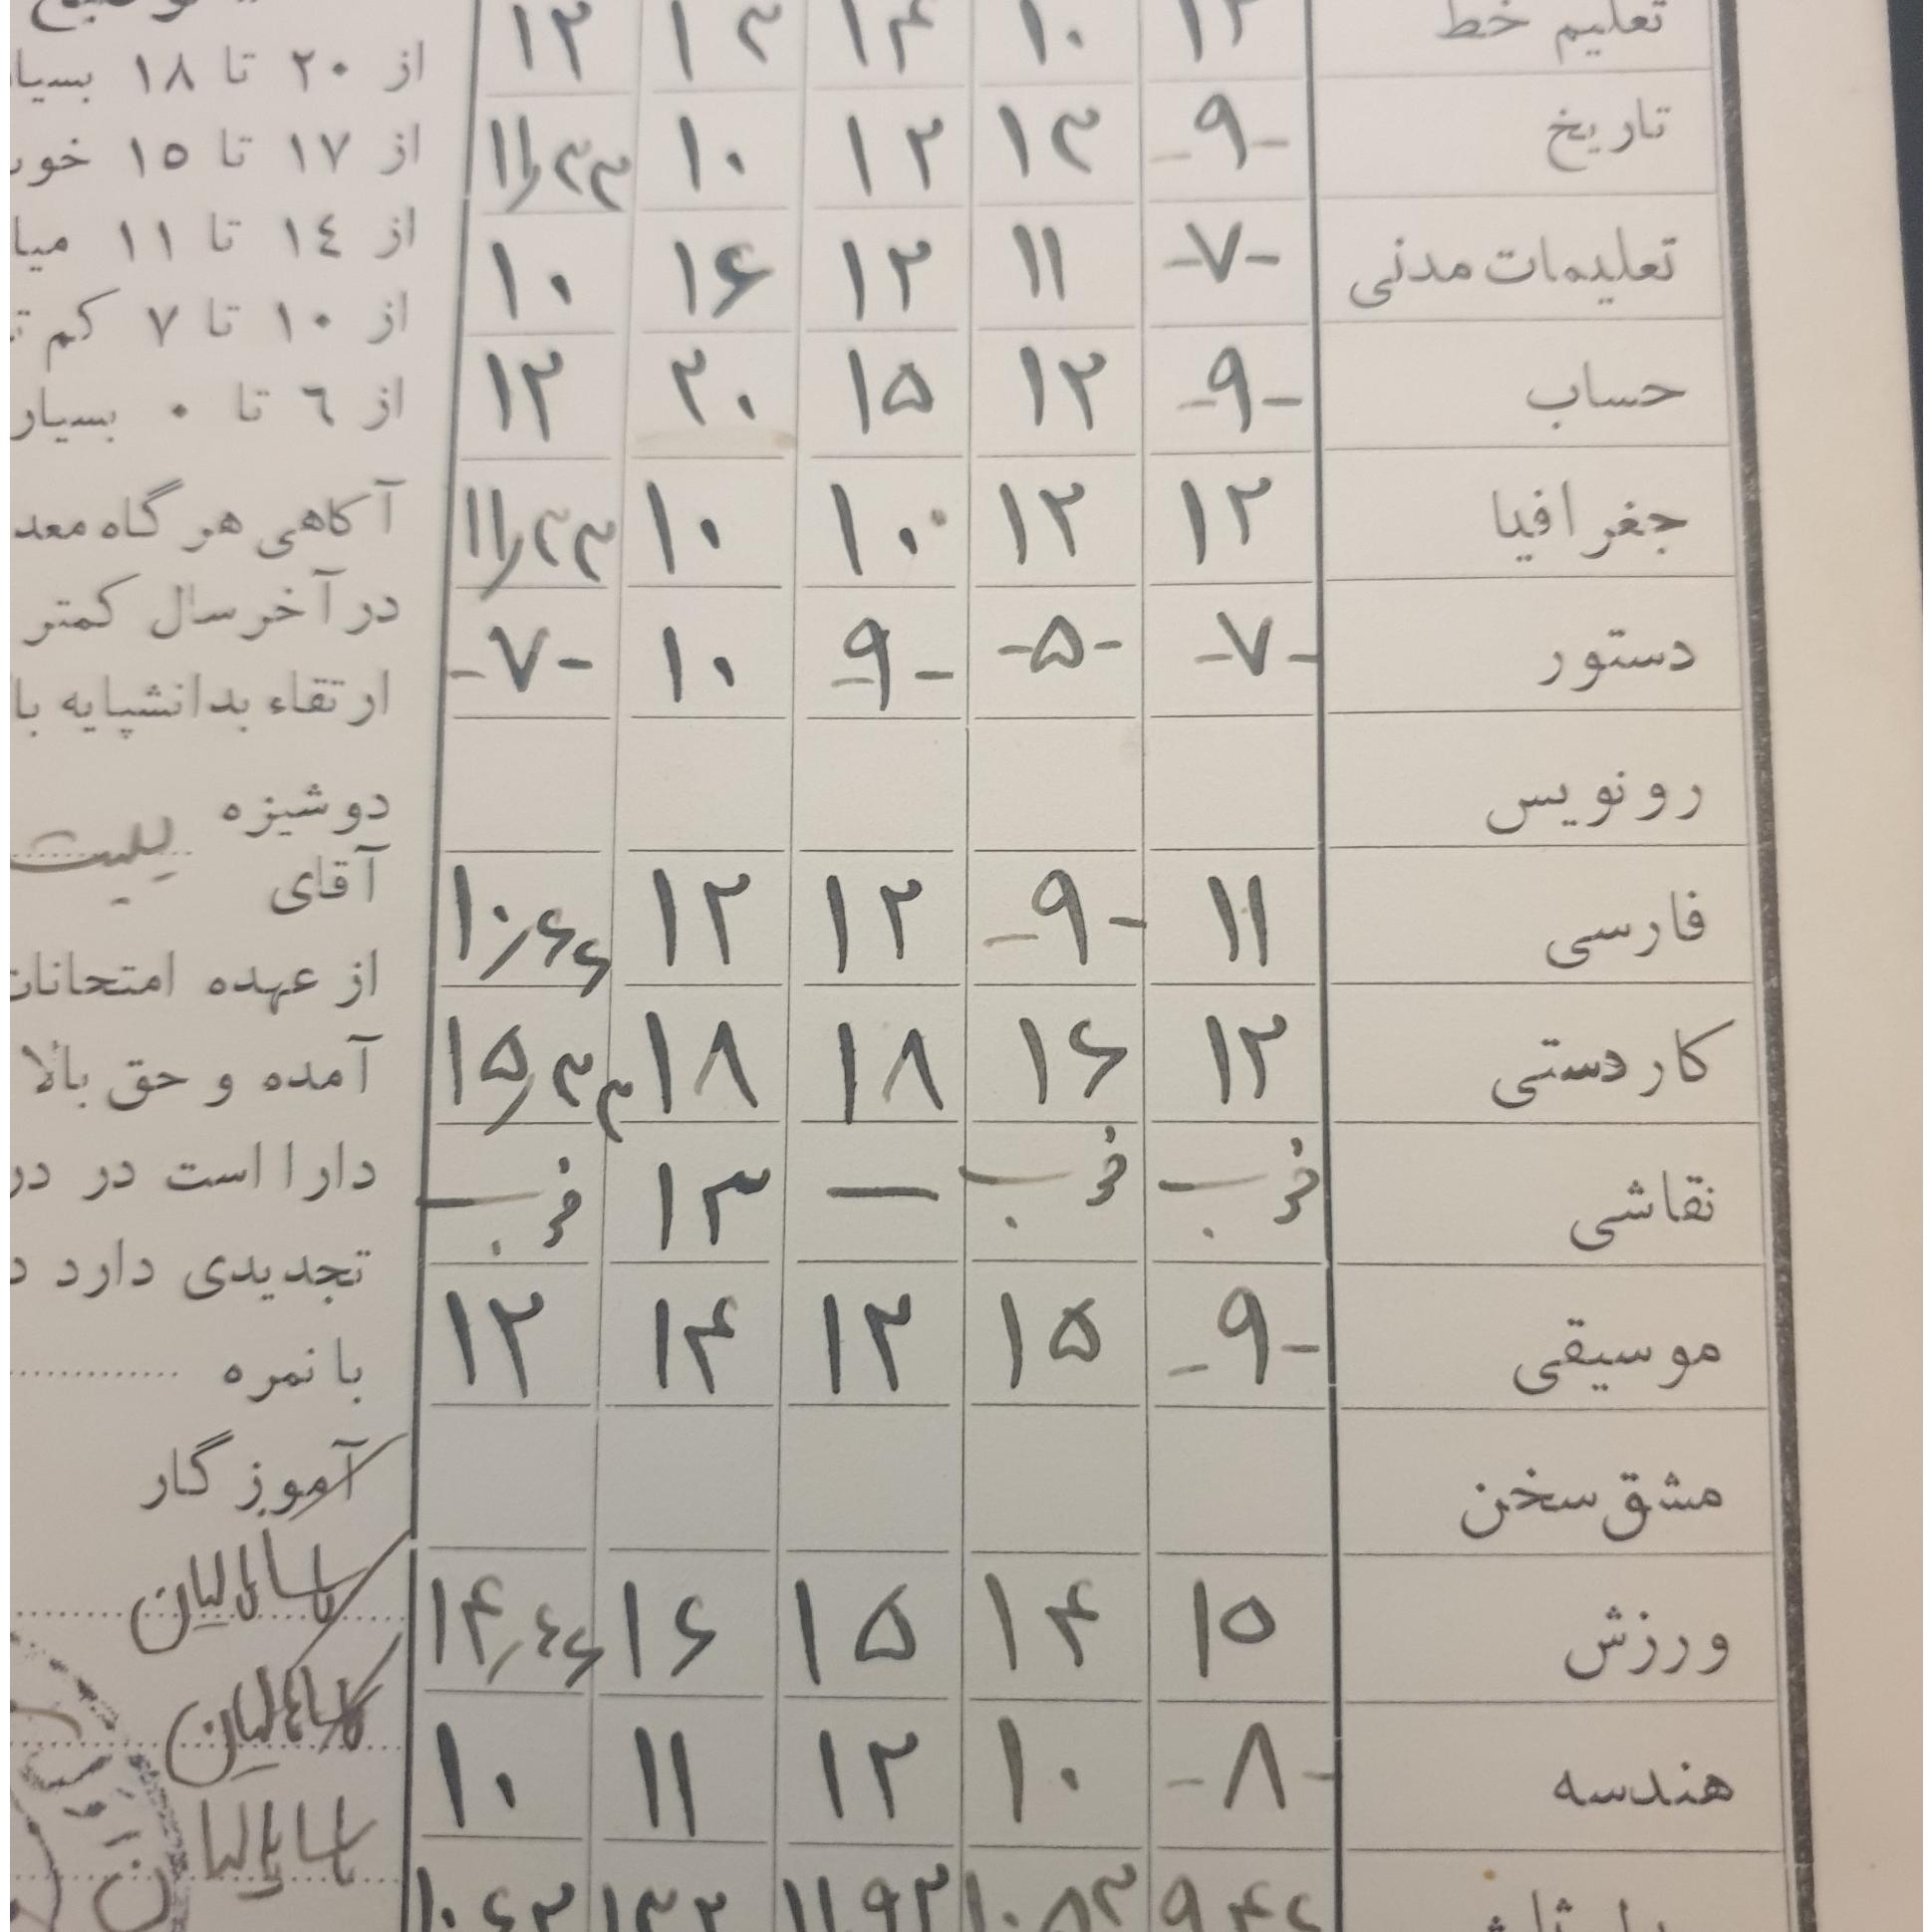 تعلیم خط ۱۲ ۱۰ ۱۴ ۱۲ ۱۲
تاریخ -۹- ۱۲ ۱۲ ۱۰ ۱۱/۳۳
تعلیمات مدنی -۷- ۱۱ ۱۲ ۱۶ ۱۰
حساب -۹- ۱۲ ۱۵ ۲۰ ۱۲
جغرافیا ۱۲ ۱۲ ۱۰ ۱۰ ۱۱/۳۳
دستور -۷- -۵- -۹- ۱۰ -۷-
رونویس
فارسی ۱۱ -۹- ۱۲ ۱۲ ۱۰/۶۶
کاردستی ۱۲ ۱۶ ۱۸ ۱۸ ۱۵/۳۳
نقاشی — ۱۳
موسیقی -۹- ۱۵ ۱۲ ۱۴ ۱۲
مشق سخن
ورزش ۱۵ ۱۴ ۱۵ ۱۶ ۱۴/۶۶
هندسه -۸- ۱۰ ۱۲ ۱۱ ۱۰
از ۲۰ تا ۱۸
از ۱۷ تا ۱۵
از ۱٤ تا ۱۱
از ۱۰ تا ۷ کم
از ٦ تا ۰ بسیار
آگاهی هر گاه
در آخر سال کمتر
ارتقاء بدانشپایه
دوشیزه
آقای
از عهده امتحانات
آمده و حق بالا
دارا است در
تجدیدی دارد
با نمره
آموزگار